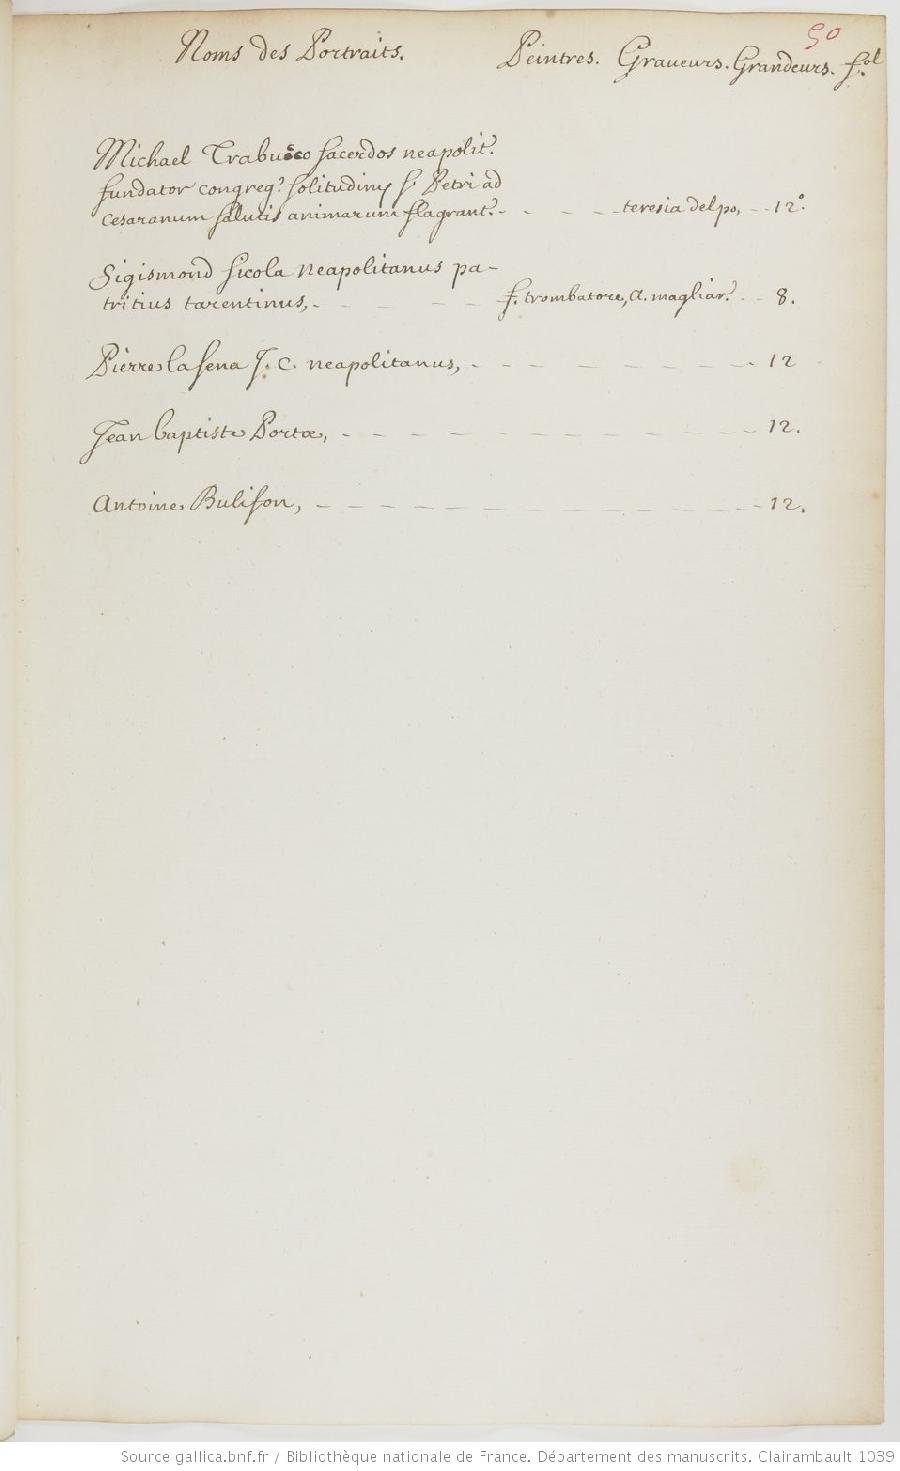 50
Noms des Portraits. Peintres. Graveurs. Grandeurs. fol
Michael Trabucco sacerdos neapolit.
fundator congreg. solitudiny s. Petri ad
cesaranum salutis animarum flagrant. - - - - teresia delpo, - - 12°.
Sigismond sicola neapolitanus pa-
tritius tarentinus, - - - - - f. trombatore, A. magliar. - - 8.
Pierre la sena J. C. neapolitanus, - - - - - - - - - 12
Jean baptiste Portæ, - - - - - - - - - - - 12.
Antoine Bulifon, - - - - - - - - - - - - 12.
Source gallica.bnf.fr / Bibliothèque nationale de France. Département des manuscrits. Clairambault 1039